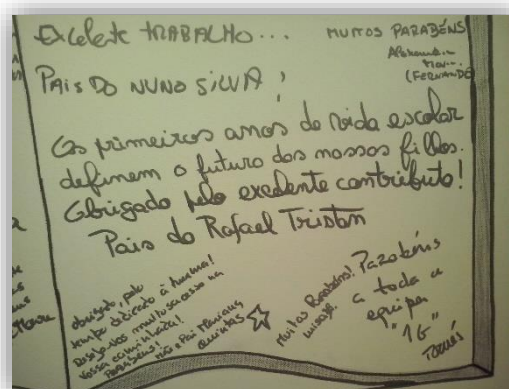 Excelente TRABALHO...
PAiS DO NUNO SiLVA!
MUITOS PARABÉNS
(FERNANDO)
Os primeiros anos de vida escolar
definem o futuro dos nossos filhos.
Obrigado pelo excelente contributo!
Pais do Rafael Tristan
Obrigado, pelo
tempo dedicado à turma!
Desejo-vos muito sucesso na
vossa caminhada!
Parabéns!
Mãe e Pai Mariana
Quintas
Muitos Parabéns!
Parabéns
a toda a
equipa
"1G"
Tomés